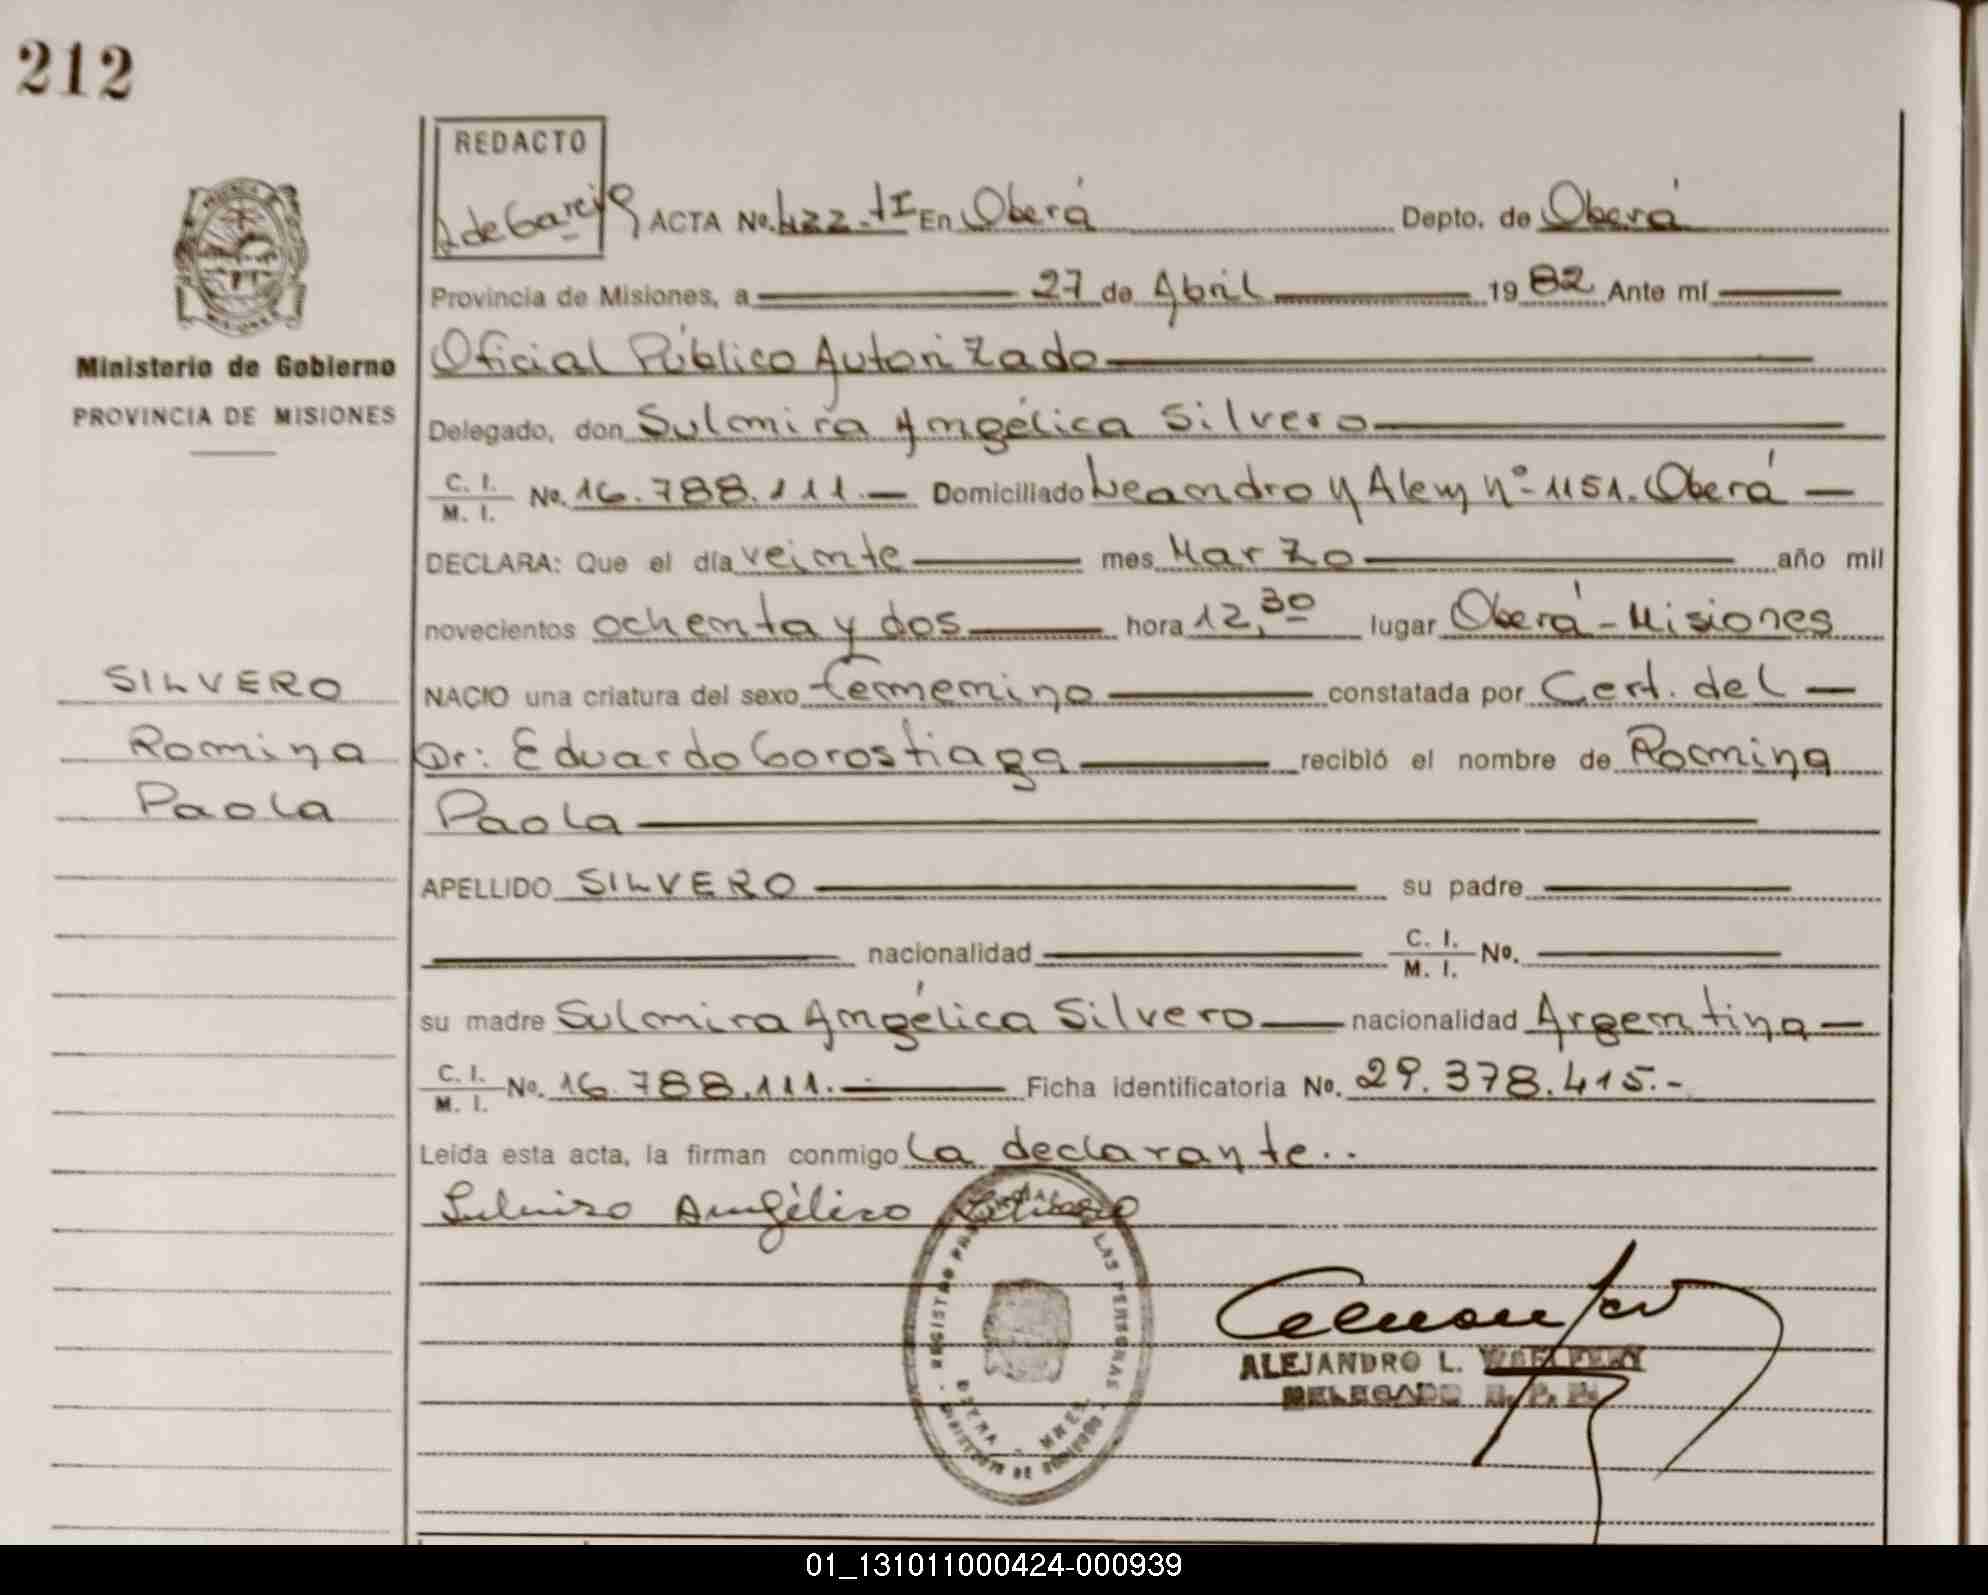 212
REDACTO
ACTA No. 422-tI En Oberá Depto. de Oberá
Provincia de Misiones, a 27 de Abril 1982 Ante mí
Oficial Público Autorizado
Delegado, don Sulmira Angélica Silvero
C. I. / M. I. No. 16.788.111.— Domiciliado Leandro N Alem Nº- 1151. Oberá —
DECLARA: Que el día veinte mes Marzo año mil
novecientos ochenta y dos hora 12,30 lugar Oberá - Misiones
NACIO una criatura del sexo femenino constatada por Cert. del —
Dr: Eduardo Gorostiaga recibió el nombre de Romina
Paola
APELLIDO SILVERO su padre
nacionalidad C. I. / M. I. No.
su madre Sulmira Angélica Silvero — nacionalidad Argentina —
C. I. / M. I. No. 16.788.111. Ficha identificatoria No. 29.378.415.-
Leída esta acta, la firman conmigo la declarante..
Sulmira Angélica Silvero
ALEJANDRO L.
DELEGADO R. P. P.
REGISTRO PROVINCIAL LAS PERSONAS
OBERA - MNES.
MINISTERIO DE GOBIERNO
Ministerio de Gobierno
PROVINCIA DE MISIONES
SILVERO
Romina
Paola
01_131011000424-000939